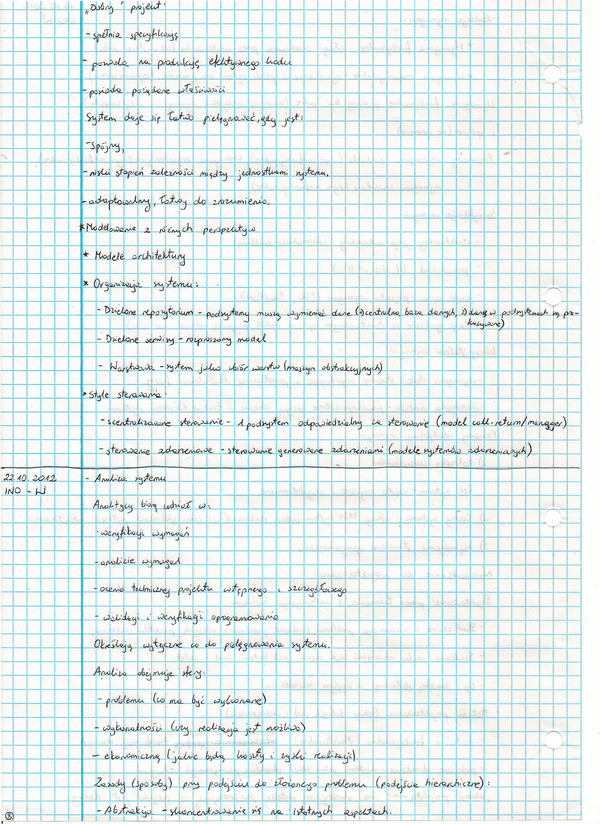 "Dobry" projekt:
- spełnia specyfikację
- pozwala na produkcję efektywnego kodu
- posiada pożądane właściwości
System daje się łatwo pielęgnować, gdy jest:
- spójny,
- niski stopień zależności między jednostkami systemu,
- adaptowalny, łatwy do zrozumienia.
* Modelowanie z różnych perspektyw
* Modele architektury
* Organizacja systemu:
- Dzielone repozytorium - podsystemy muszą wymieniać dane (1) centralna baza danych, 2) dane w podsystemach są prze-
kazywane)
- Dzielone serwisy - rozproszony model
- Warstwowa - system jako zbiór warstw (maszyn abstrakcyjnych)
* Style sterowania
- scentralizowane sterowanie - 1 podsystem odpowiedzialny za sterowanie (model call-return/manager)
- sterowanie zdarzeniowe - sterowanie generowane zdarzeniami (modele systemów zdarzeniowych)
22.10.2012 - Analiza systemu
INO - W
Analitycy biorą udział w:
- weryfikacji wymagań
- analizie wymagań
- ocenie technicznej projektu wstępnego i szczegółowego
- walidacji i weryfikacji oprogramowania
Określają wytyczne co do pielęgnowania systemu.
Analiza obejmuje sfery:
- problemu (co ma być wykonane)
- wykonalności (czy realizacja jest możliwa)
- ekonomiczną (jakie będą koszty i zyski realizacji)
Zasady (sposoby) przy podejściu do złożonego problemu (podejście hierarchiczne):
- Abstrakcja - skoncentrowanie się na istotnych aspektach.